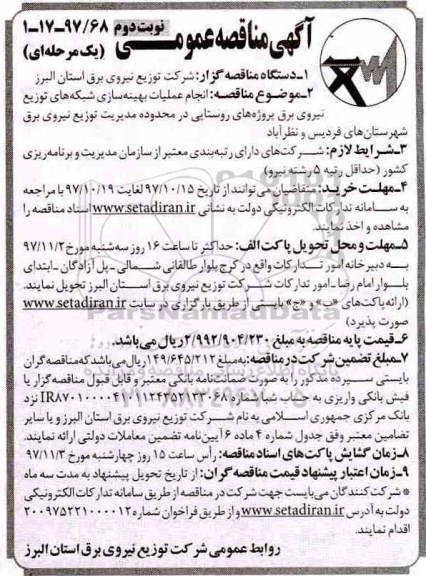 آگهی مناقصه عمومی نوبت دوم ۹۷/۶۸-۱۷-۱
(یک مرحله‌ای)
۱ـ دستگاه مناقصه گزار: شرکت توزیع نیروی برق استان البرز
۲ـ موضوع مناقصه: انجام عملیات بهینه‌سازی شبکه‌های توزیع
نیروی برق پروژه‌های روستایی در محدوده مدیریت توزیع نیروی برق
شهرستان‌های فردیس و نظرآباد
۳ـ شرایط لازم: شرکت‌های دارای رتبه‌بندی معتبر از سازمان مدیریت و برنامه‌ریزی
کشور (حداقل رتبه ۵ رشته نیرو)
۴ـ مهلت خرید: متقاضیان می‌توانند از تاریخ ۹۷/۱۰/۱۵ لغایت ۹۷/۱۰/۱۹ با مراجعه
به سامانه تدارکات الکترونیکی دولت به نشانی www.setadiran.ir اسناد مناقصه را
مشاهده و اخذ نمایند.
۵ـ مهلت و محل تحویل پاکت الف: حداکثر تا ساعت ۱۶ روز سه‌شنبه مورخ ۹۷/۱۱/۲
به دبیرخانه امور تدارکات واقع در کرج بلوار طالقانی شمالی ـ پل آزادگان ـ ابتدای
بلوار امام رضا ـ امور تدارکات شرکت توزیع نیروی برق استان البرز تحویل نمایند.
(ارائه پاکت‌های «ب» و «ج» بایستی از طریق بارگزاری در سایت www.setadiran.ir
صورت پذیرد)
۶ـ قیمت پایه مناقصه به مبلغ ۲/۹۹۲/۹۰۴/۲۳۰ ریال می‌باشد.
۷ـ مبلغ تضمین شرکت در مناقصه: به مبلغ ۱۴۹/۶۴۵/۲۱۲ ریال می‌باشد که مناقصه گران
بایستی سپرده مذکور را به صورت ضمانت‌نامه بانکی معتبر و قابل قبول مناقصه گزار یا
فیش بانکی واریزی به حساب شبا شماره نزد
بانک مرکزی جمهوری اسلامی به نام شرکت توزیع نیروی برق استان البرز و یا سایر
تضامین معتبر وفق جدول شماره ۴ ماده ۶ آیین‌نامه تضمین معاملات دولتی ارائه نمایند.
۸ـ زمان گشایش پاکت‌های اسناد مناقصه: رأس ساعت ۱۵ روز چهارشنبه مورخ ۹۷/۱۱/۳
۹ـ زمان اعتبار پیشنهاد قیمت مناقصه گران: از تاریخ تحویل پیشنهاد به مدت سه ماه
* شرکت کنندگان می‌بایست جهت شرکت در مناقصه از طریق سامانه تدارکات الکترونیکی
دولت به آدرس www.setadiran.ir و از طریق فراخوان شماره ۲۰۰۹۷۵۲۲۱۰۰۰۰۱۲
اقدام نمایند.
روابط عمومی شرکت توزیع نیروی برق استان البرز